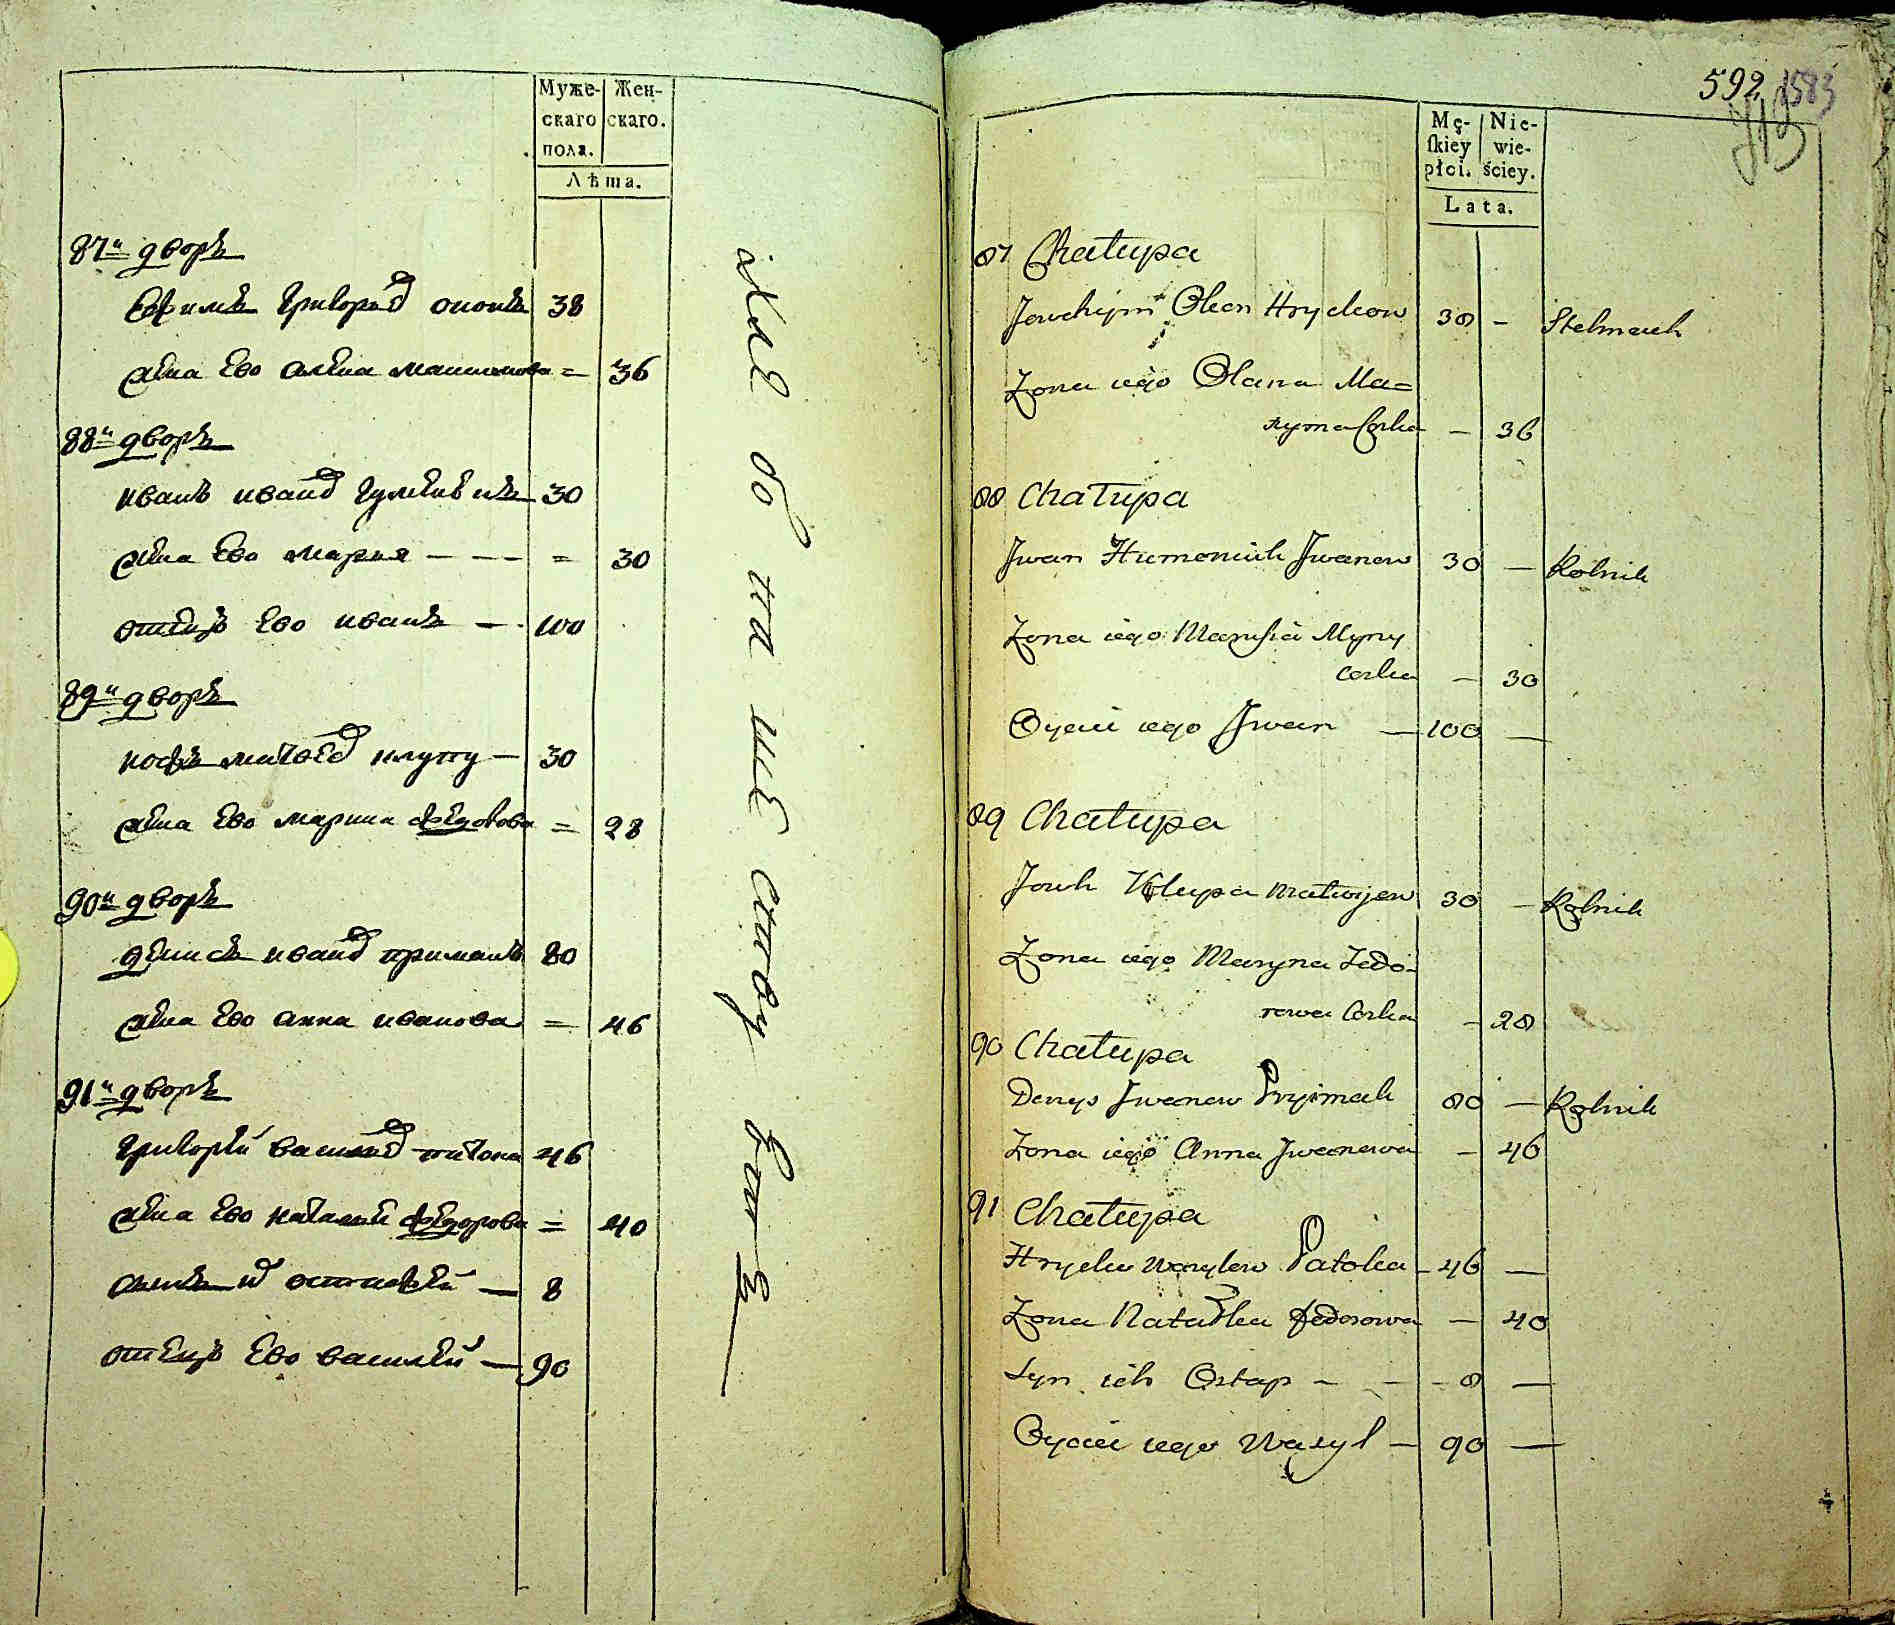 Муже- Жен-
скаго скаго.
пола.
Лѣта.
87й дворъ
Ефимъ григорьев 38
жена ево алена = 36
88й дворъ
иванъ иванов 30
жена ево мария — — — = 30
отецъ ево иванъ — 100
89й дворъ
матвеев — 30
жена ево марина = 28
90й дворъ
денисъ иванов примакъ 80
жена ево анна иванова = 46
91й дворъ
григорей васильев патока 46
жена ево наталья федорова = 40
сынъ их остапей — 8
отецъ ево василей — 90
592 583
Mę- Nie-
ſkiey wie-
płci. ściey.
Lata.
87 Chałupa
Jowchym Hrycków 38 – Stelmach
Zona iego Olana Ma=
xyma Corka — 36
88 Chałupa
Jwan Humeniuk Jwanow 30 — Rolnik
Zona iego Marusia Myny
Corka — 30
Oyciec iego Jwan — 100 —
89 Chałupa
Klupa Matwijew 30 — Rolnik
Zona iego Maryna Fedo-
rowa Corka – 28
90 Chałupa
Denys Jwanow Pryimak 80 — Rolnik
Zona iego Anna Jwanowa – 46
91 Chałupa
Hrycko Wasylew Patoka – 46 —
Zona Natalka Fedorowa — 40
Syn ich Ostap – – – 8 —
Oyciec iego Wasyl — 90 —